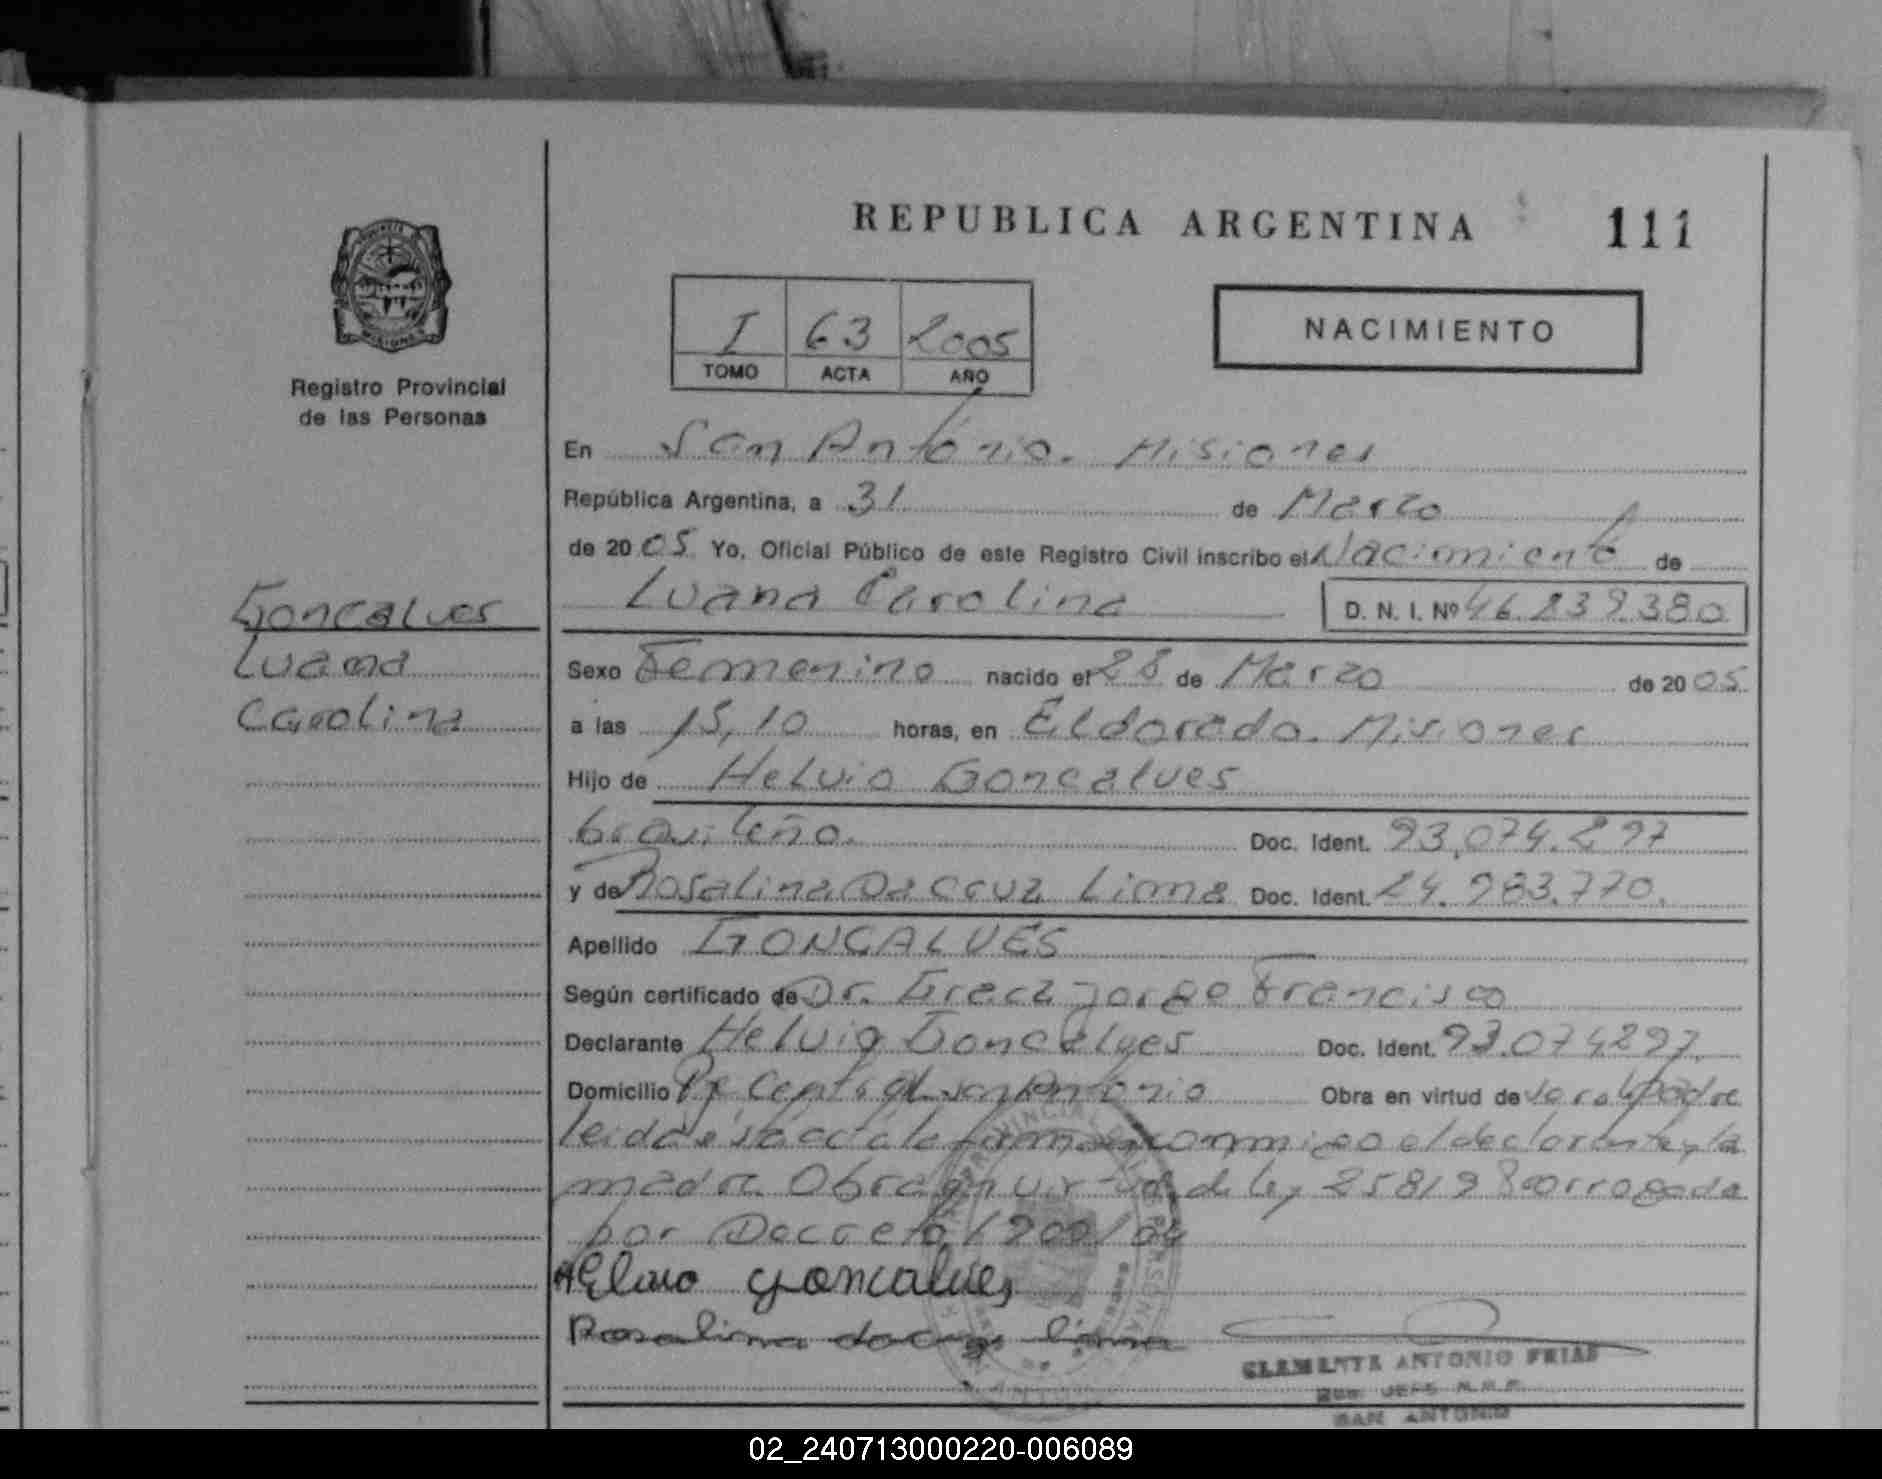 REPUBLICA ARGENTINA 111
I 63 2005
TOMO ACTA AÑO
NACIMIENTO
Registro Provincial
de las Personas
Goncalves
Luana
Carolina
En San Antonio. Misiones
República Argentina, a 31 de Marzo
de 2005 Yo, Oficial Público de este Registro Civil inscribo el Nacimiento de
Luana Carolina D. N. I. Nº 46.839.380
Sexo Femenino nacido el 28 de Marzo de 2005
a las 15,10 horas, en Eldorado. Misiones
Hijo de Helvio Goncalves
brasileño. Doc. Ident. 93.074.297
y de Rosalina Da Cruz Lima Doc. Ident. 24.983.770.
Apellido GONCALVES
Según certificado de Dr. Jorge Francisco
Declarante Helvio Goncalves Doc. Ident. 93.074297.
Domicilio Central San Antonio Obra en virtud de ser el padre
leida esta acta la firman conmigo el declarante y la
madre. Obra en virtud de ley 25819 Prorrogada
por Decreto 1900/04
HElvio goncalves
Rosalina da cruz lima
CLEMENTE ANTONIO FRIAS
SAN ANTONIO
02_240713000220-006089